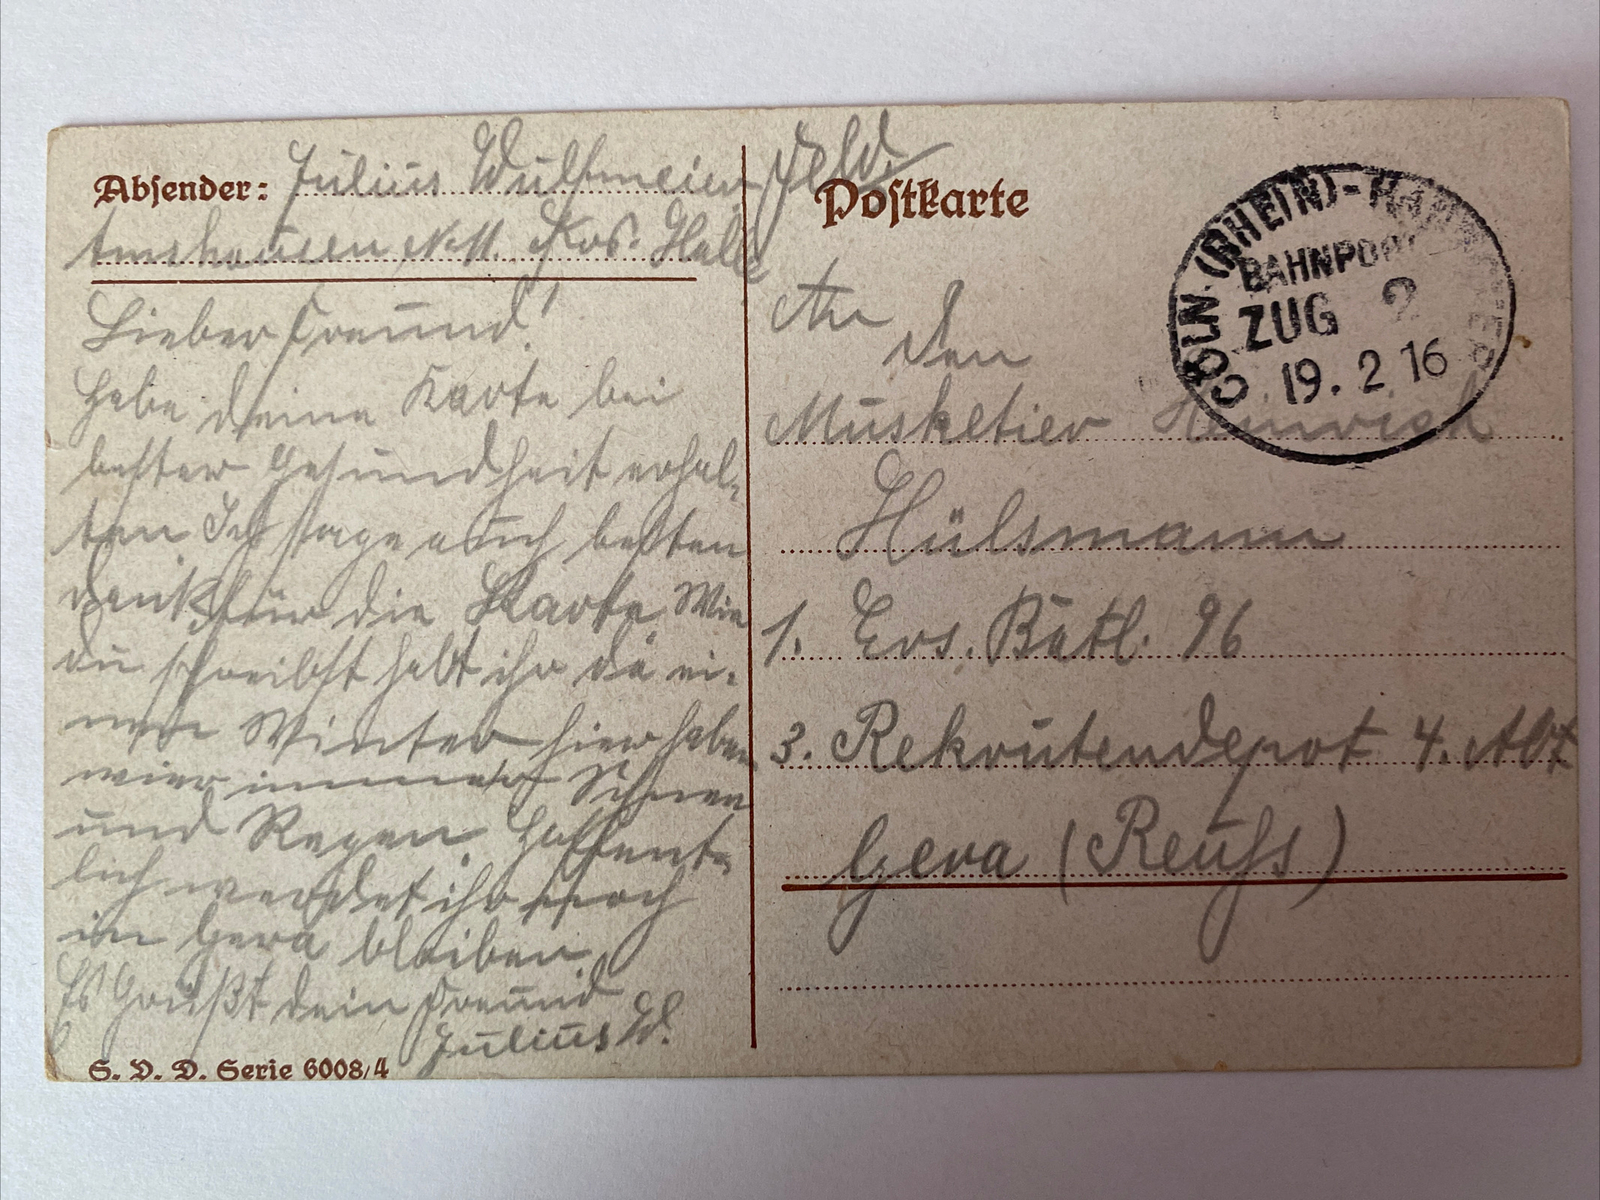 Absender: Julius Wulfmeier
Amshausen N. 11. Krs. Halle
Lieber Freund!
Habe deine Karte bei
bester Gesundheit erhal-
ten. Ich sage auch besten
dank für die Karte. Wie
du schreibst habt ihr da ei-
nen Winter hier haben
wier immer Schnee
und Regen. Hoffent-
lich werdet ihr noch
in Gera bleiben.
Es Grüßt dein Freund
Julius W.
S. V. D. Serie 6008/4
Feld
Postkarte
An
den
Musketier Heinrich
Hülsmann
1. Ers. Batl. 96
3. Rekrutendepot 4. Abt
Gera (Reuſs)
CÖLN (RHEIN)-HANNOVER
BAHNPOST
ZUG 2
19. 2 16